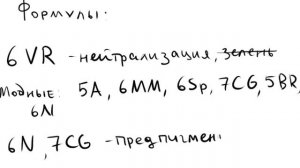 Формулы:
6 VR - нейтрализация, зелень
Модные: 5A, 6MM, 6Sp, 7CG, 5BR,
6N
6N, 7CG - предпигмен